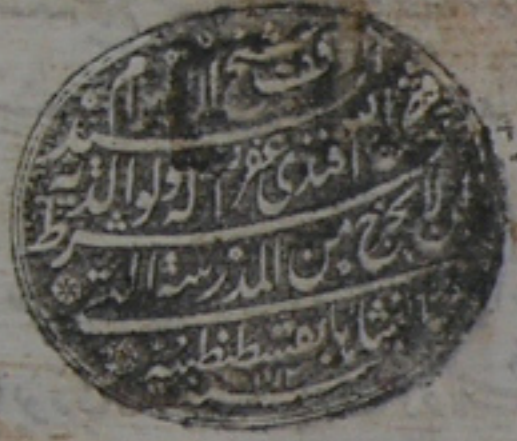 وقف شيخ الاسلام
السيد فيض الله
افندى غفر الله له ولوالديه
بشرط
ان لا يخرج من المدرسة التى
انشاها بقسطنطينية
سنة